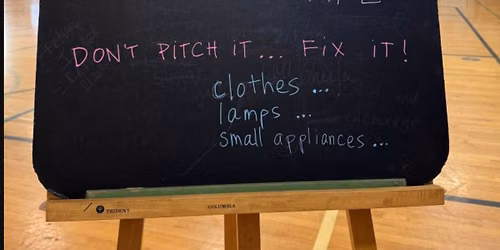 DON'T PITCH IT... FIX IT!
clothes ...
lamps ...
small appliances...
TRIDENT COLUMBIA